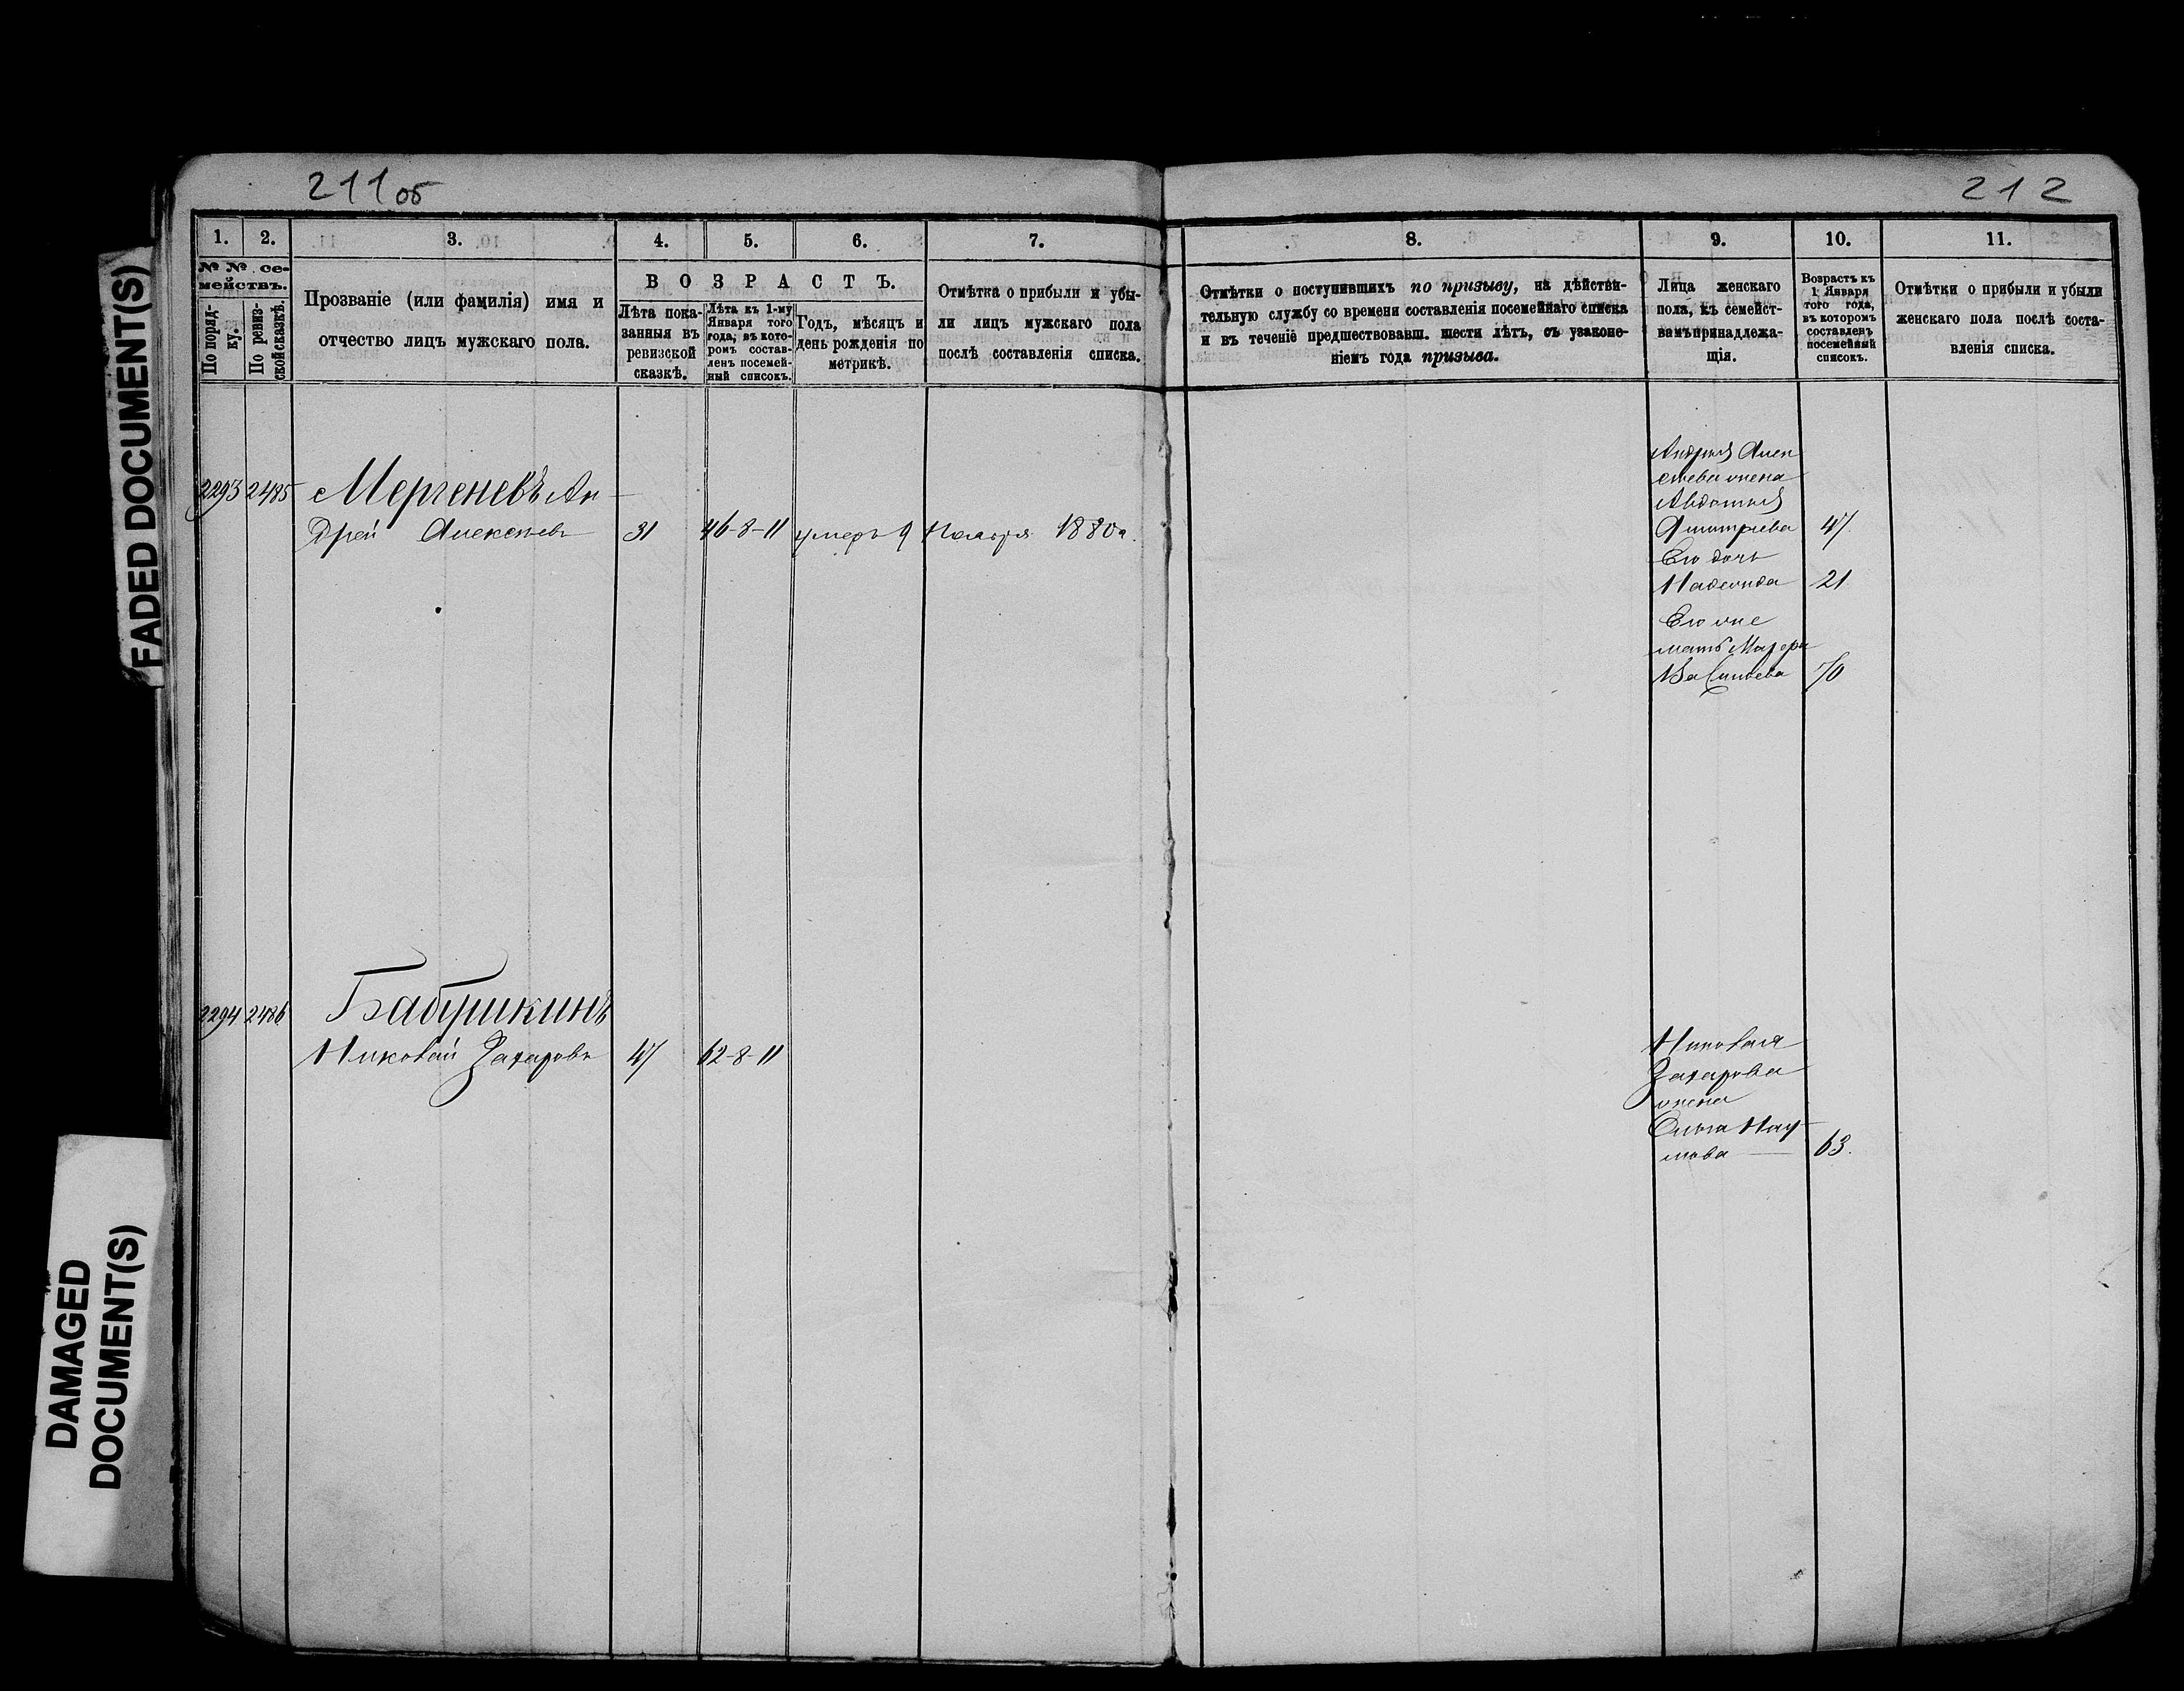 211об
212
1. 2. 3. 4. 5. 6. 7. 8. 9. 10. 11.
№ № се-
мействъ.
По поряд-
ку.
По ревиз-
ской сказкѣ.
Прозваніе (или фамилія) имя и
отчество лицъ мужскаго пола.
ВОЗРАСТЪ.
Лѣта пока-
занныя въ
ревизской
сказкѣ.
Лѣта къ 1-му
Января того
года, въ кото-
ромъ состав-
ленъ посемей-
ный списокъ.
Годъ, мѣсяцъ и
день рожденія по
метрикѣ.
Отмѣтка о прибыли и убы-
ли лицъ мужскаго пола
послѣ составленія списка.
Отмѣтки о поступившихъ по призыву, на дѣйстви-
тельную службу со времени составленія посемейнаго списка
и въ теченіе предшествовавш. шести лѣтъ, съ узаконе-
ніемъ года призыва.
Лица женскаго
пола, къ семейст-
вамъ принадлежа-
щія.
Возрастъ къ
1 Января
того года,
въ которомъ
составленъ
посемейный
списокъ.
Отмѣтки о прибыли и убыли
женскаго пола послѣ соста-
вленія списка.
2293 2485 Мергеневъ Ан-
дрей Алексѣевъ 31 46-8-11 умеръ 9 Ноября 1880 г.
Андрея Алек
сѣева жена
Авдотья
Дмитриева 47.
Его дочь
Надежда 21
Его же
мать
Васильева 70
2294 2486 Бабушкинъ
Николай Захаровъ 47 62-8-11
Николая
Захарова
жена
Ольга Нау-
мова 63.
FADED DOCUMENT(S)
DAMAGED
DOCUMENT(S)